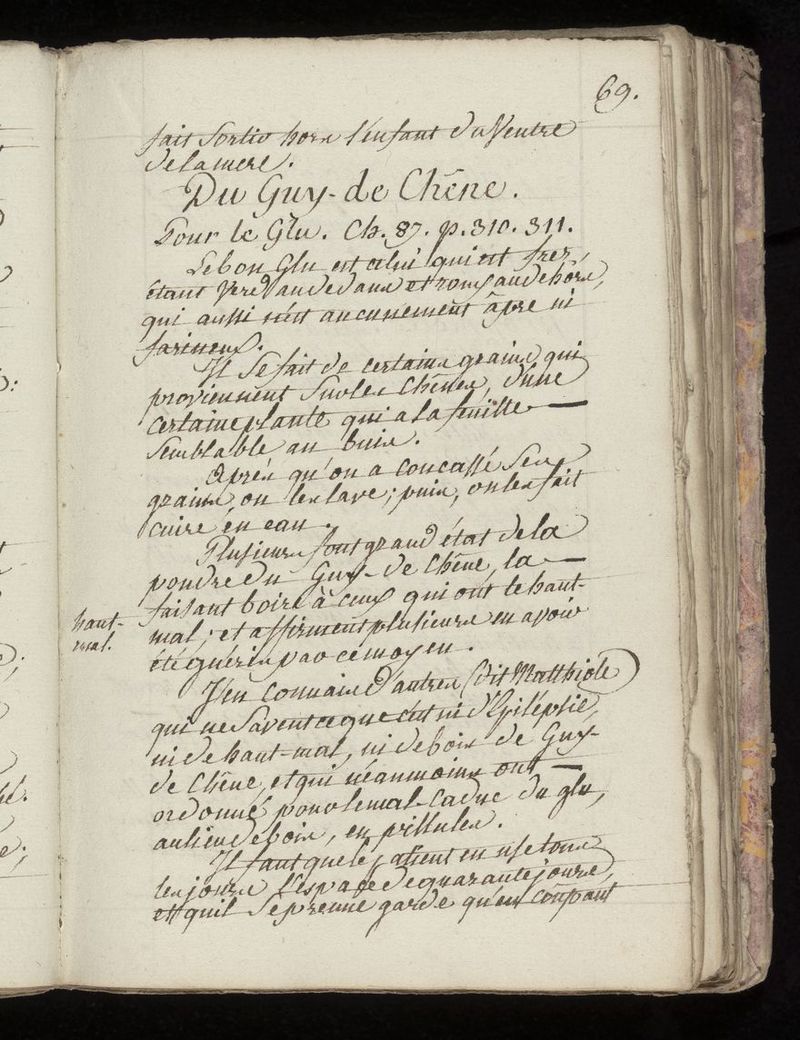 69.
fait Sortir hors l'enfant du Ventre
de la mere.
Du Guy-de Chêne.
Pour le Glu. Ch. 87. p. 310. 311.
Le bon Glu est celui qui est frez,
étant Verd au dedans et roux au dehors,
qui aussi n'est aucunement âpre ni
farineux.
Il Se fait de certains grains qui
proviennent Sur les Chênes, d'une
certaine plante qui a la feuille —
Semblable au buis.
Après qu'on a concassé Ses
grains, on les lave; puis, on les fait
cuire en eau.
Plusieurs font grand état de la
poudre du Guy-de Chêne, la —
faisant boire à ceux qui ont le haut-
haut-
mal.
mal; et affirment plusieurs en avoir
été guéris par ce moyen.
J'en connais d'autres (dit Matthiole)
qui ne Savent ce que c'est ni d'Epilépsie,
ni de haut-mal, ni de bois de Guy-
de Chêne, et qui néanmoins ont —
ordonné pour le mal-Caduc du glu,
au lieu de bois, en pillules.
Il faut que le patient en use tous
les jours l'espace de quarante jours,
et qu'il Se prenne garde qu'en coupant